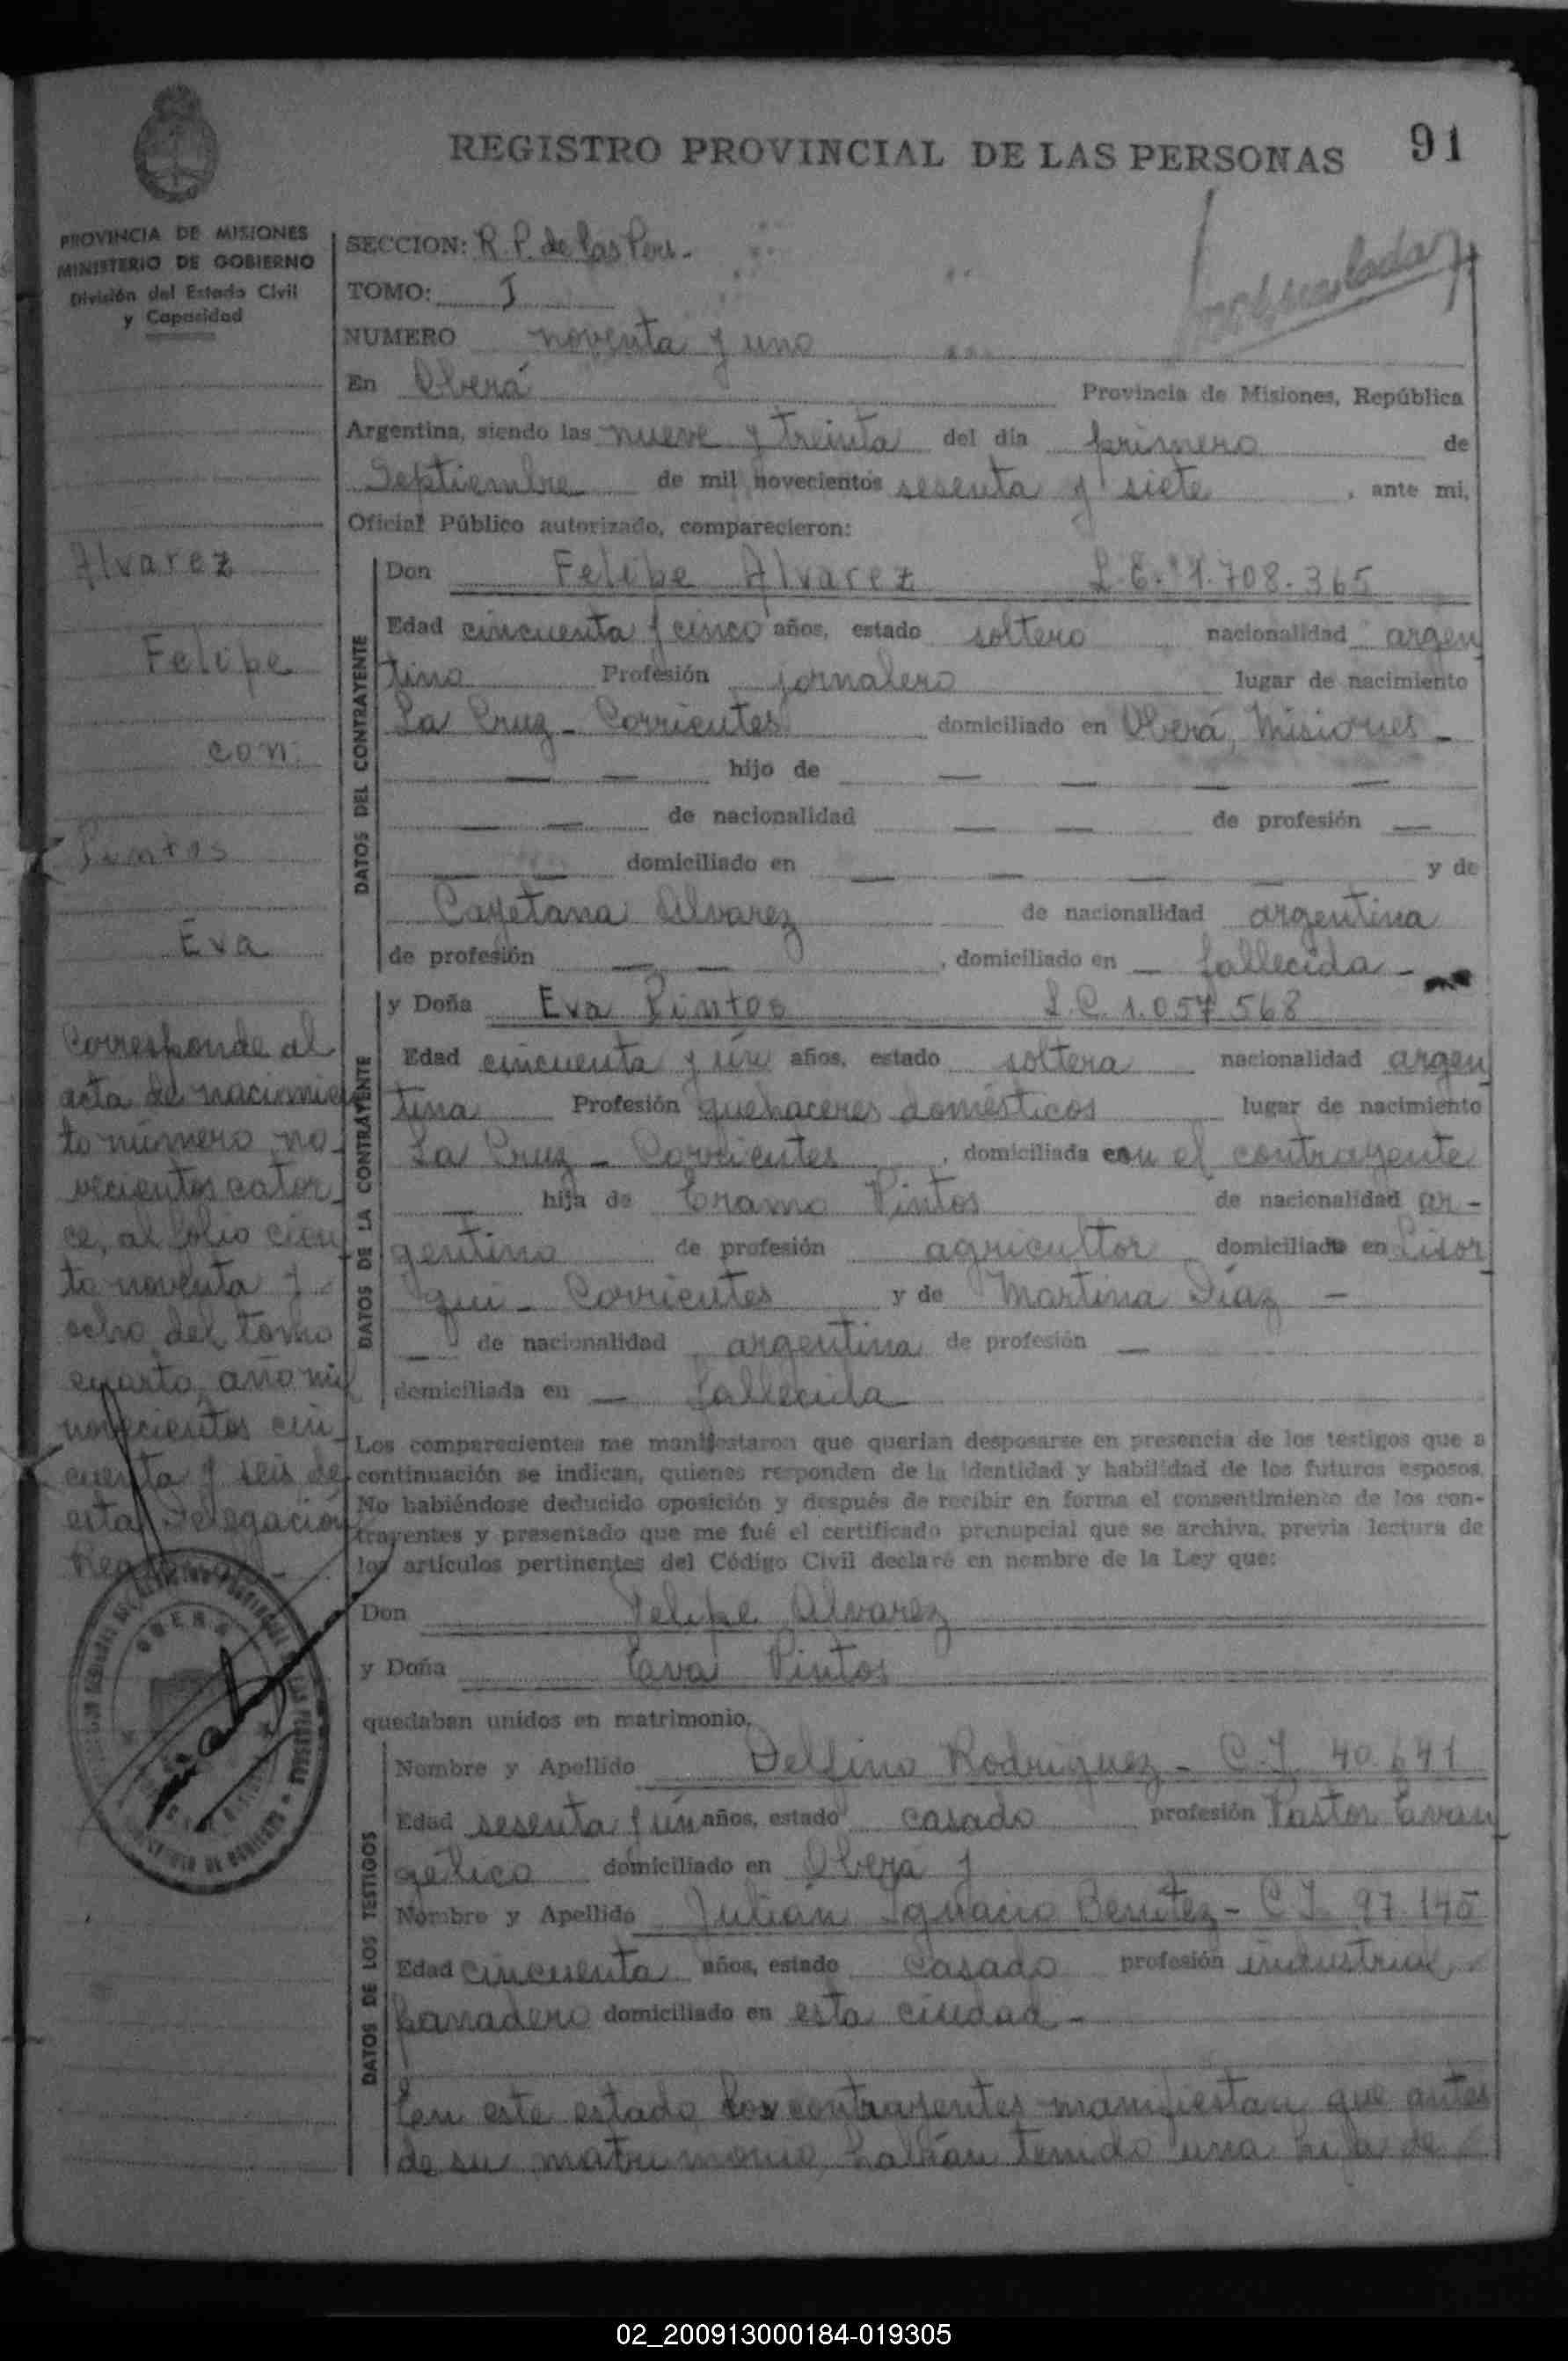 REGISTRO PROVINCIAL DE LAS PERSONAS 91
PROVINCIA DE MISIONES
MINISTERIO DE GOBIERNO
División del Estado Civil
y Capacidad
SECCION: R. P. de las Pers.
TOMO: I
NUMERO noventa y uno
En Oberá Provincia de Misiones, República
Argentina, siendo las nueve y treinta del día primero de
Septiembre de mil novecientos sesenta y siete, ante mi,
Oficial Público autorizado, comparecieron:
Alvarez
Felipe
con
Pintos
Eva
Corresponde al
acta de nacimien
to número no-
vecientos cator-
ce, al folio cien
to noventa y
ocho del tomo
cuarto, año mil
novecientos cin-
cuenta y seis de
esta Delegación
DATOS DEL CONTRAYENTE
Don Felipe Alvarez L.E. 1.708.365
Edad cincuenta y cinco años, estado soltero nacionalidad argen
tino Profesión jornalero lugar de nacimiento
La Cruz - Corrientes domiciliado en Oberá, Misiones -
— — hijo de — — —
— — de nacionalidad — — de profesión —
— — domiciliado en — — — — y de
Cayetana Alvarez de nacionalidad argentina
de profesión — —, domiciliado en — fallecida -
DATOS DE LA CONTRAYENTE
y Doña Eva Pintos L.C. 1.057.568
Edad cincuenta y ún años, estado soltera nacionalidad argen
tina Profesión quehaceres domésticos lugar de nacimiento
La Cruz - Corrientes, domiciliada con el contrayente
— hija de Eramo Pintos de nacionalidad ar-
gentino de profesión agricultor domiciliado en
- Corrientes y de Martina Díaz -
— de nacionalidad argentina de profesión —
domiciliada en — fallecida
Los comparecientes me manifestaron que querían desposarse en presencia de los testigos que a
continuación se indican, quienes responden de la identidad y habilidad de los futuros esposos.
No habiéndose deducido oposición y después de recibir en forma el consentimiento de los con-
trayentes y presentado que me fué el certificado prenupcial que se archiva, previa lectura de
los artículos pertinentes del Código Civil declaré en nombre de la Ley que:
Don Felipe Alvarez
y Doña Eva Pintos
quedaban unidos en matrimonio.
DATOS DE LOS TESTIGOS
Nombre y Apellido Delfino Rodriguez - C.I. 40.641
Edad sesenta y ún años, estado casado profesión Pastor Evan
gélico domiciliado en Oberá y
Nombre y Apellido Julián Ignacio Benitez - C.I. 97.145
Edad cincuenta años, estado casado profesión industrial
panadero domiciliado en esta ciudad -
En este estado los contrayentes manifiestan que antes
de su matrimonio, habían tenido una hija de
02_200913000184-019305